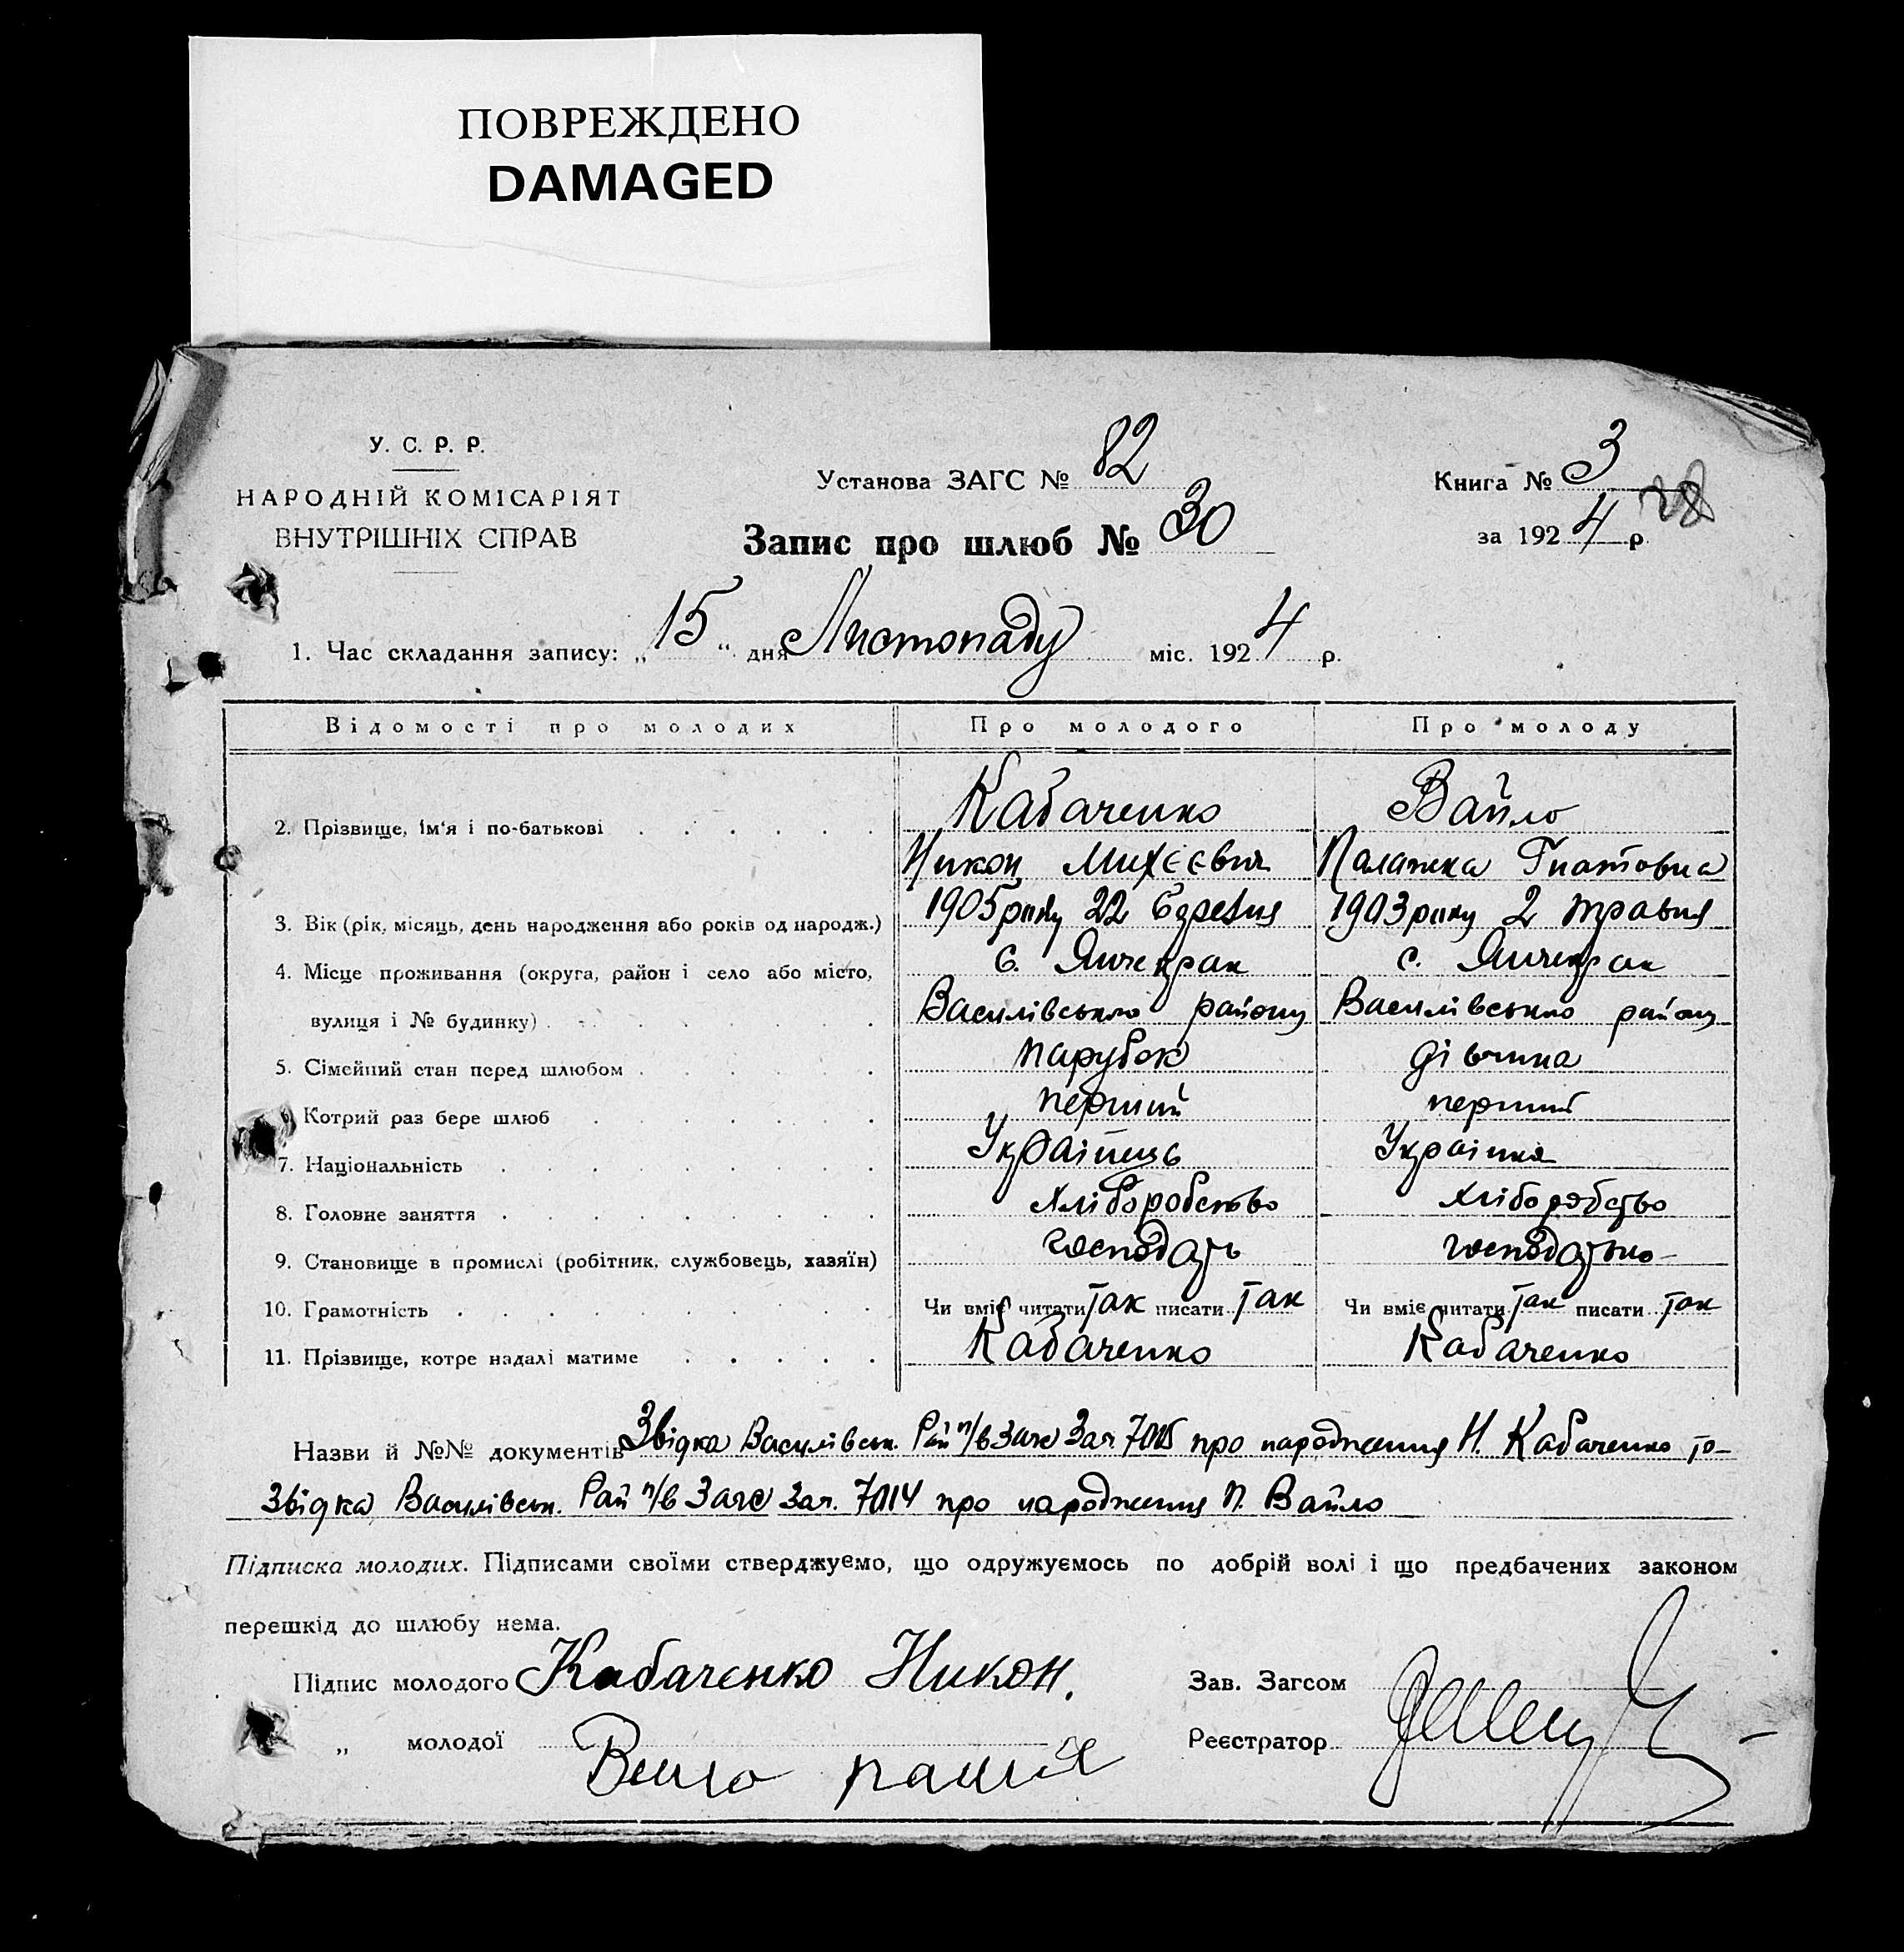 ПОВРЕЖДЕНО
DAMAGED
У. С. Р. Р.
НАРОДНІЙ КОМІСАРІЯТ
ВНУТРІШНІХ СПРАВ
Установа ЗАГС № 82
Запис про шлюб № 30
Книга № 3
28
за 1924 р.
1. Час складання запису: „15“ дня Листопаду міс. 1924 р.
Відомості про молодих Про молодого Про молоду
2. Прізвище, ім'я і по-батькові Кабаченко Вайло
Никон Михєєвич Палажка Гнатовна
3. Вік (рік, місяць, день народження або років од народж.) 1905 року 22 1903 року 2 травня
4. Місце проживання (округа, район і село або місто, с. Янчекрак с. Янчекрак
вулиця і № будинку) Василівського району Василівського району
5. Сімейний стан перед шлюбом парубок дівчина
6. Котрий раз бере шлюб перший перший
7. Національність Українець Українка
8. Головне заняття хліборобство хліборобство
9. Становище в промислі (робітник, службовець, хазяїн) господарь
10. Грамотність Чи вміє читати так писати так Чи вміє читати так писати так
11. Прізвище, котре надалі матиме Кабаченко Кабаченко
Назви й №№ документів Звідка Василівськ. Рай п/в Загс Зач. 7015 про народження Н. Кабаченко то-
Звідка Василівськ. Рай п/в Загс Зач. 7014 про народження П. Вайло
Підписка молодих. Підписами своїми стверджуємо, що одружуємось по добрій волі і що предбачених законом
перешкід до шлюбу нема.
Підпис молодого Кабаченко Никон.
Зав. Загсом
„ молодої
Реєстратор